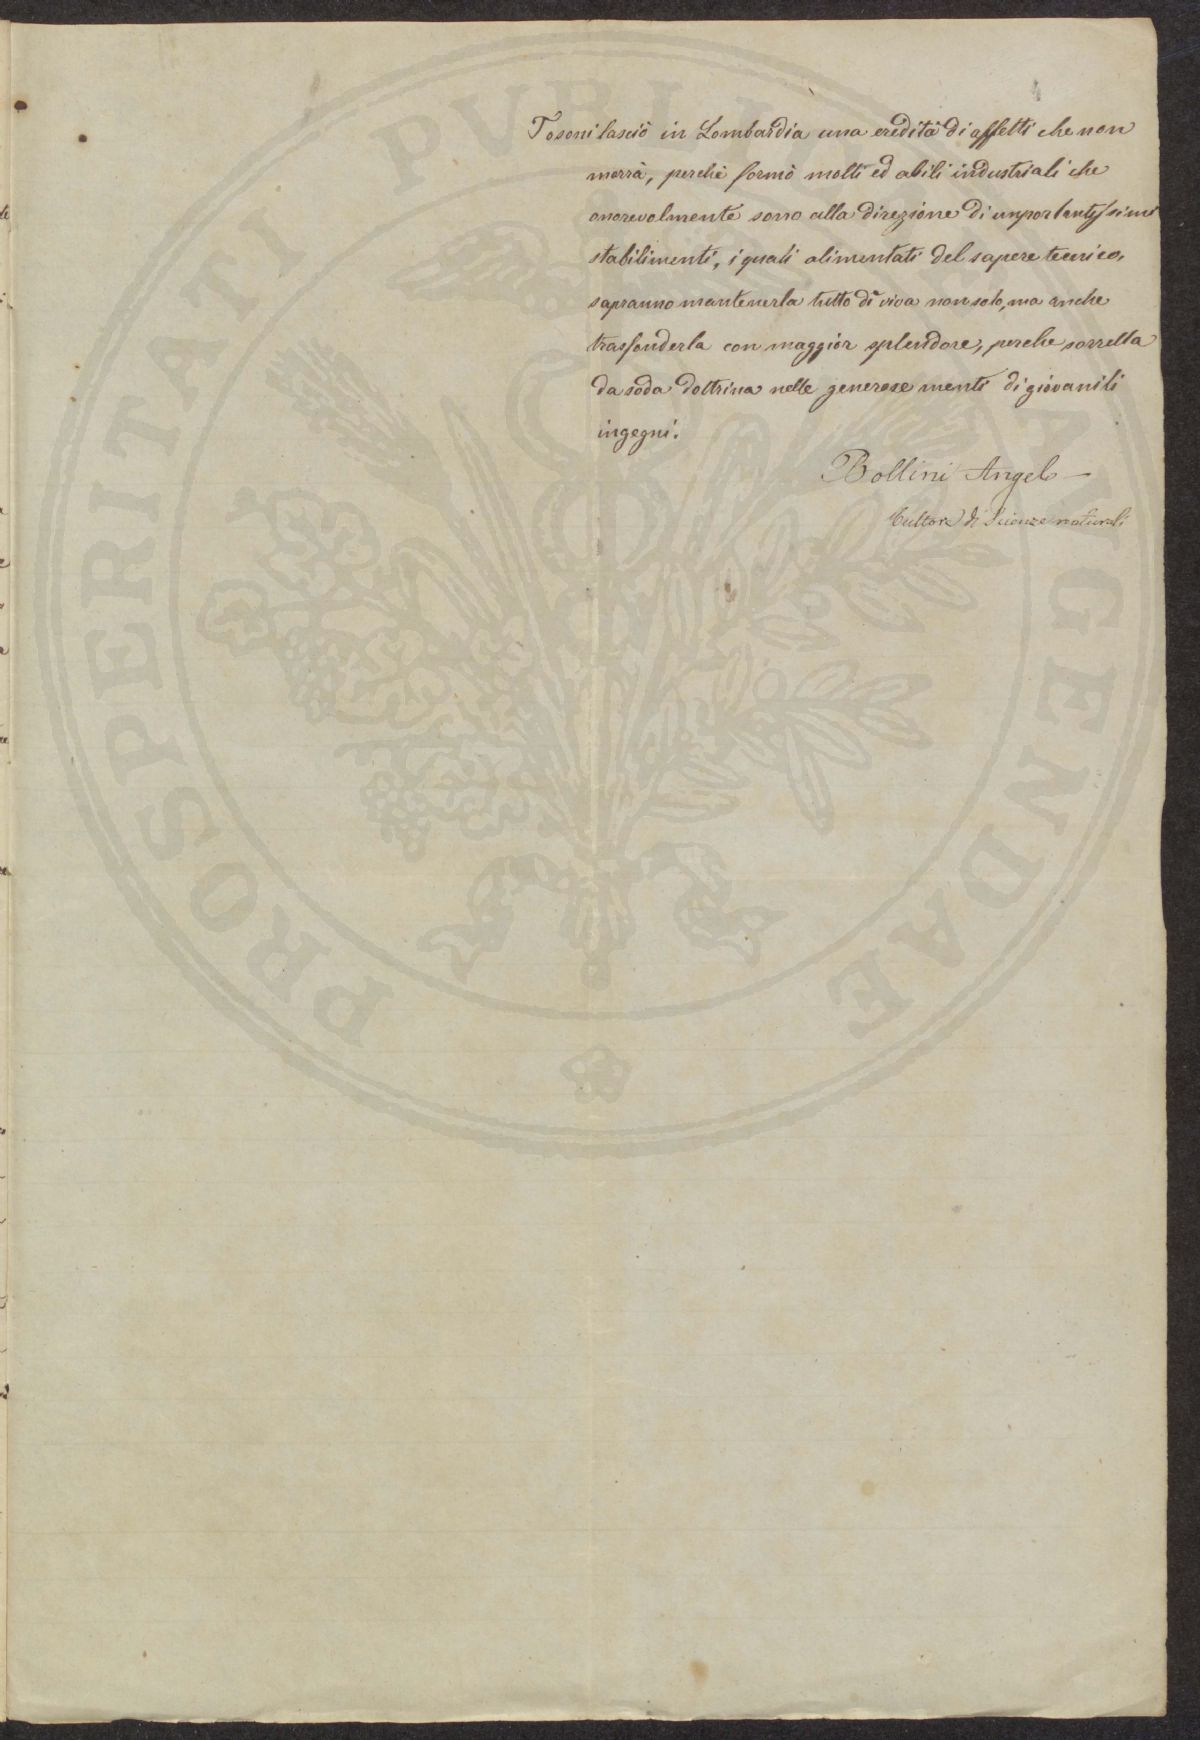 Tosoni lasciò in Lombardia una eredità di affetti che non
morrà, perchè formò molti ed abili industriali che
onorevolmente sono alla direzione di importantissimi
stabilimenti, i quali alimentati del sapere tecnico,
sapranno mantenerla tutto dì viva non solo, ma anche
trasfonderla con maggior splendore, perche sorretta
da soda dottrina nelle generose menti di giovanili
ingegni.
Bollini Angelo
Cultore di Scienze naturali
PROSPERITATI PUBLI NGENDAE